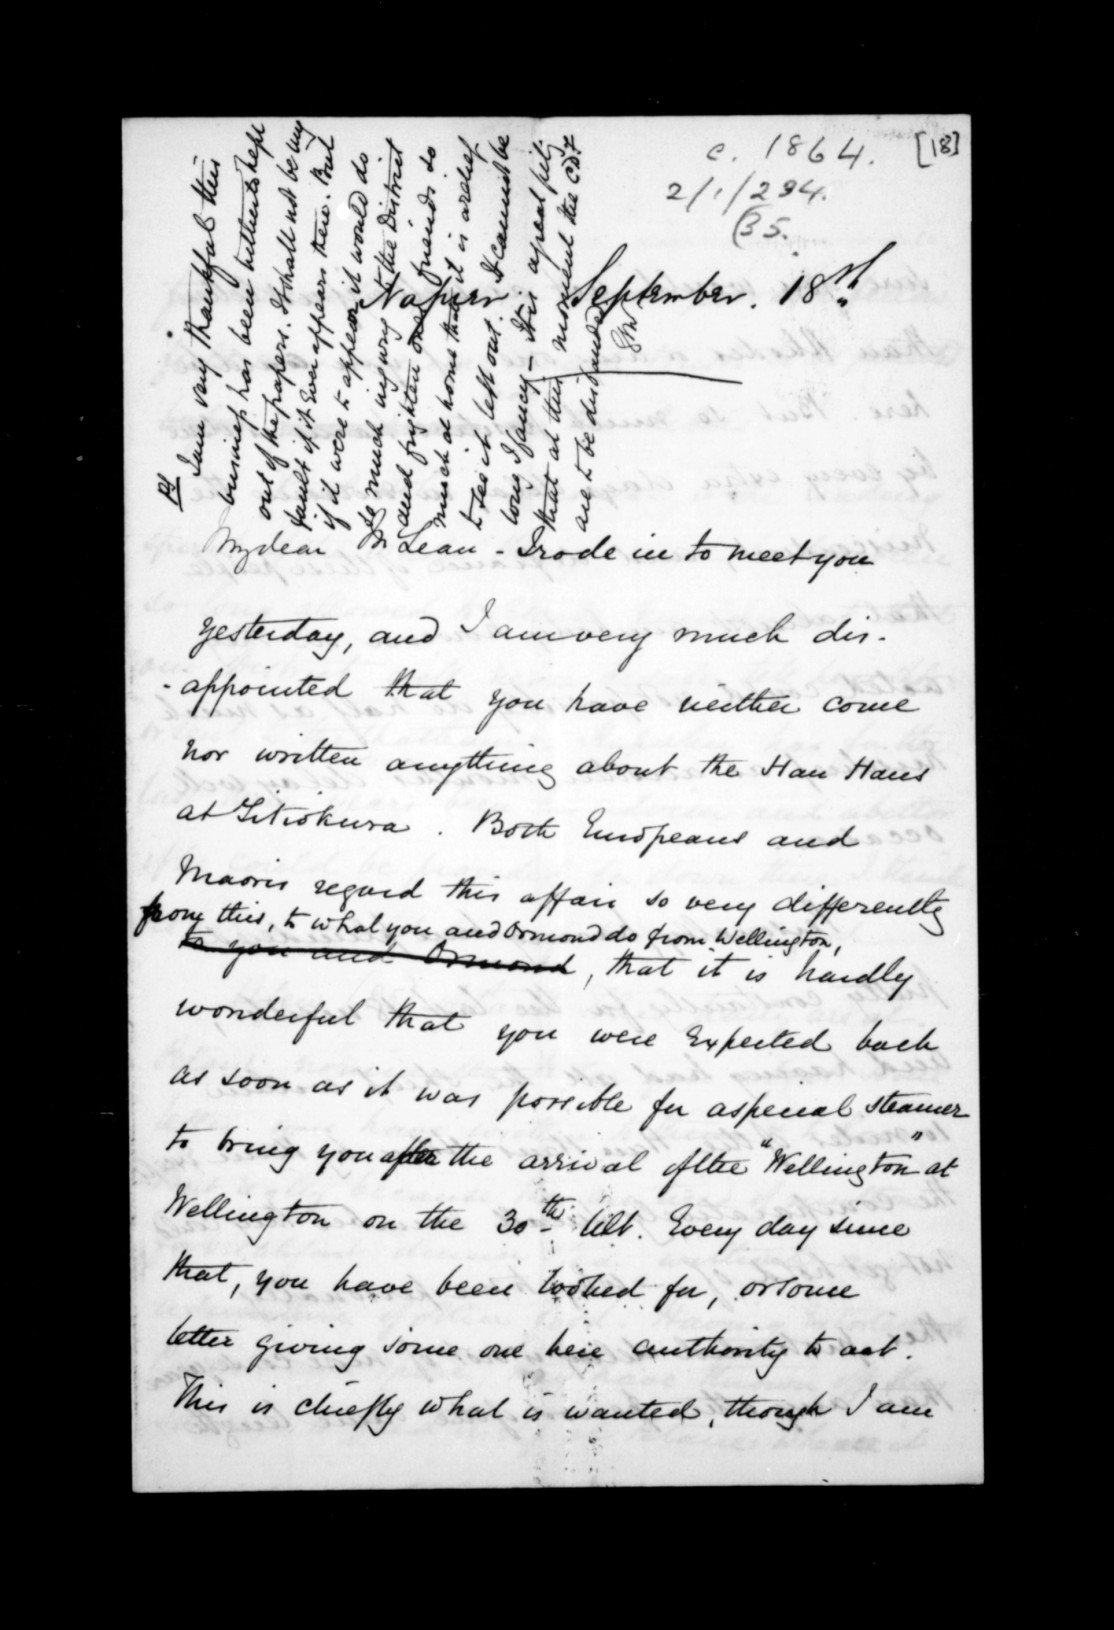 c. 1864.
[18]
2/1/294.
(35.
Napier. September. 18th
My dear McLean - I rode in to meet you
yesterday, and I am very much dis-
-appointed that you have neither come
nor written anything about the Hau Haus
at Titiokura. Both Europeans and
Maoris regard this affair so very differently
from this, to what you and Ormond do from Wellington,
to you and Ormond, that it is hardly
wonderful that you were expected back
as soon as it was possible for a special steamer
to bring you after the arrival of the "Wellington" at
Wellington on the 30th Ult. Every day since
that, you have been looked for, or some
letter giving some one here authority to act.
This is chiefly what is wanted, though I am
I am very thankful this
business has been hitherto kept
out of the papers. It shall not be my
fault if it ever appears there. But
if it were to appear it would do
so much injury to the District
and frighten our friends so
much at home that it is a relief
to see it left out. It cannot be
long I fancy - It is a great pity
that at this moment the CDF
are to be disbanded